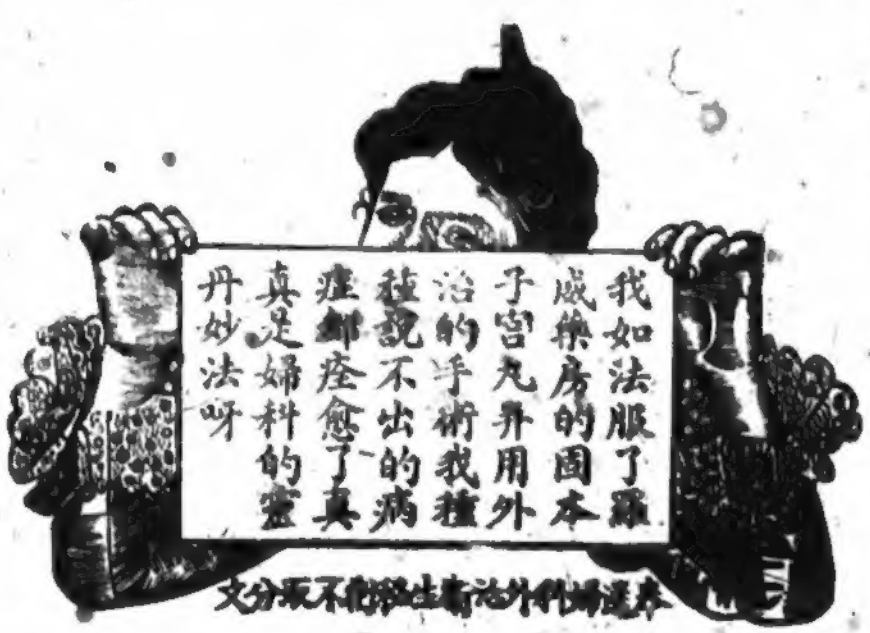 我如法服了羅
威藥房的固本
子宮丸幷用外
治的手術我種
種說不出的病
症都痊愈了真
真是婦科的靈
丹妙法呀
奉送婦科外治衛生　不取分文